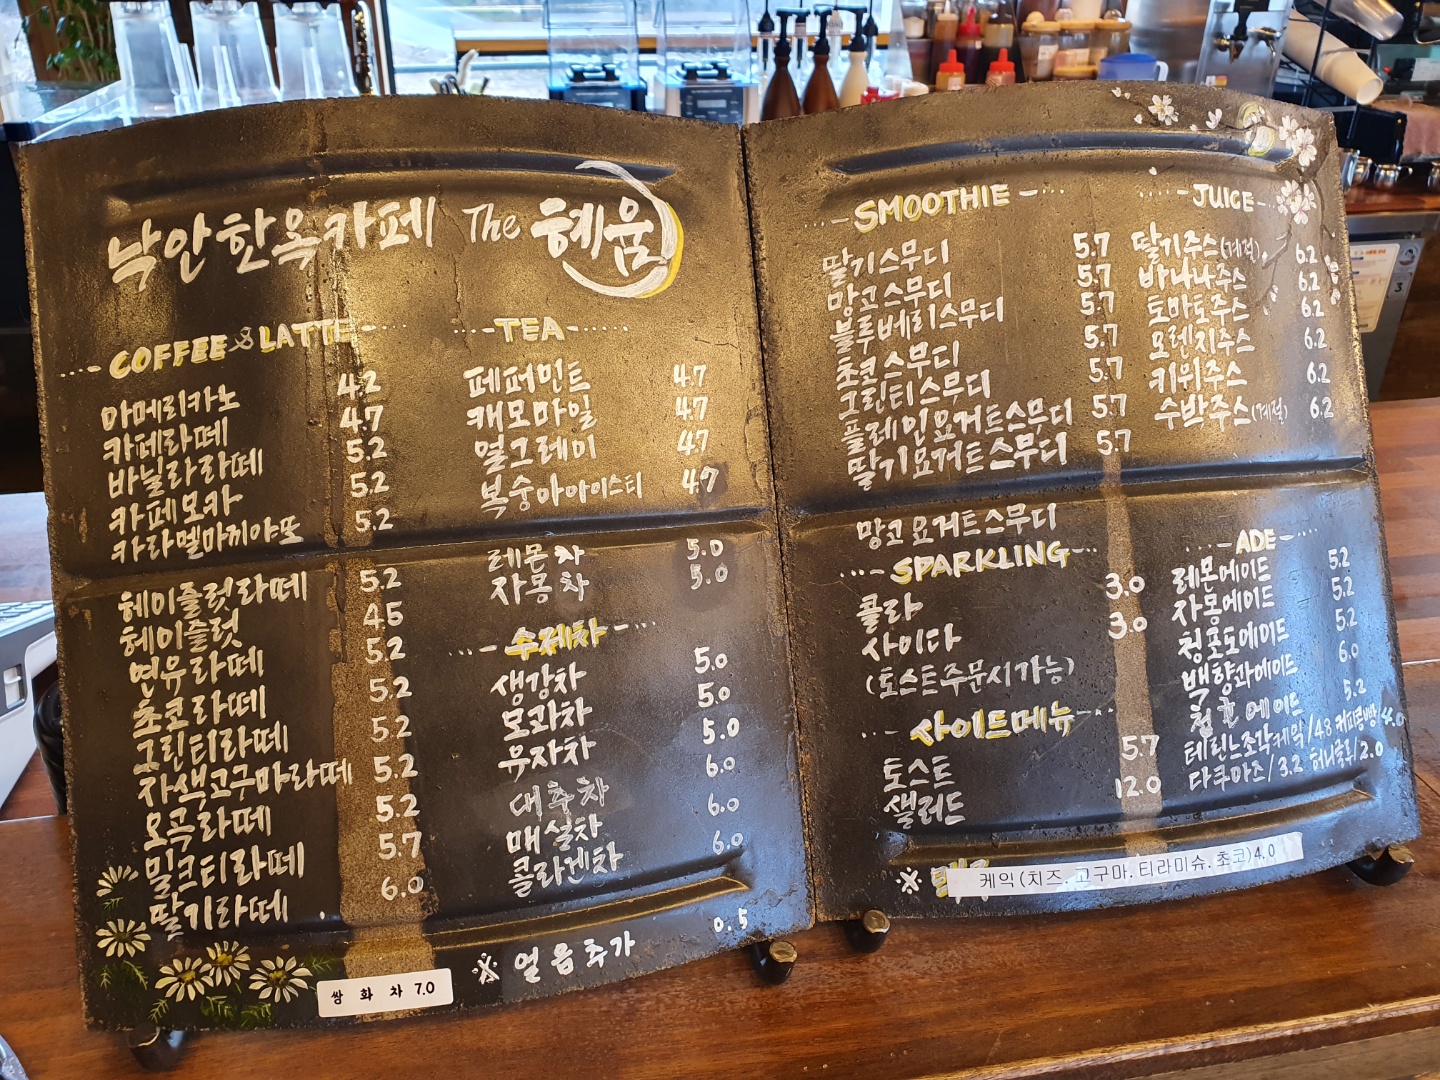 낙안한옥카페 The 혜윰
COFFEE & LATTE
아메리카노 4.2
카페라떼 4.7
바닐라라떼 5.2
카페모카 5.2
카라멜마끼야또 5.2
헤이즐럿라떼 5.2
헤이즐럿 4.5
연유라떼 5.2
초코라떼 5.2
그린티라떼 5.2
자색고구마라떼 5.2
오곡라떼 5.2
밀크티라떼 5.7
딸기라떼 6.0
쌍 화 차 7.0
TEA
페퍼민트 4.7
캐모마일 4.7
얼그레이 4.7
복숭아아이스티 4.7
레몬차 5.0
자몽차 5.0
수제차
생강차 5.0
모과차 5.0
유자차 5.0
대추차 6.0
매실차 6.0
콜라겐차 6.0
※ 얼음추가 0.5
SMOOTHIE
딸기스무디 5.7
망고스무디 5.7
블루베리스무디 5.7
초코스무디 5.7
그린티스무디 5.7
플레인요거트스무디 5.7
딸기요거트스무디 5.7
망고요거트스무디
JUICE
딸기주스(계절) 6.2
바나나주스 6.2
토마토주스 6.2
오렌지주스 6.2
키위주스 6.2
수박주스(계절) 6.2
SPARKLING
콜라 3.0
사이다 3.0
(토스트주문시가능)
사이드메뉴
토스트 5.7
샐러드 12.0
ADE
레몬에이드 5.2
자몽에이드 5.2
청포도에이드 5.2
백향과에이드 6.0
에이드 5.2
테린느조각케익/4.8 커피콩빵 4.0
다쿠아즈/3.2 허니호두/2.0
※
케익(치즈. 고구마. 티라미슈. 초코)4.0
3